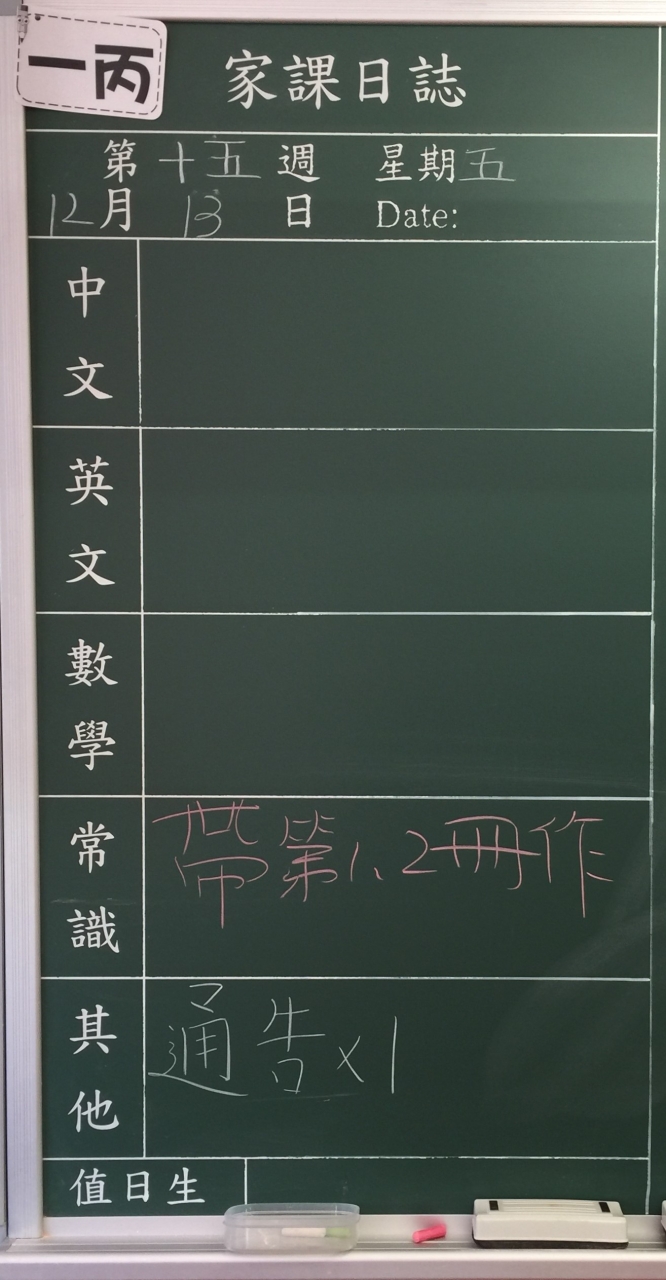 一丙
家課日誌
第十五週 星期五
12月 13 日 Date:
中文
英文
數學
常識 帶第1、2冊作
其他 通告x1
值日生